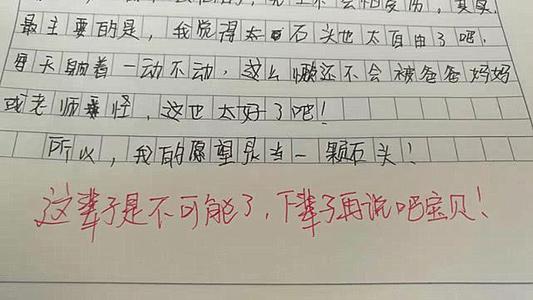 最主要的是，我觉得太石头也太自由了吧。
每天躺着一动不动，这么懒还不会被爸爸妈妈
或老师责怪，这也太好了吧！
所以，我的愿望是当一颗石头！
这辈子是不可能了，下辈子再说吧宝贝！